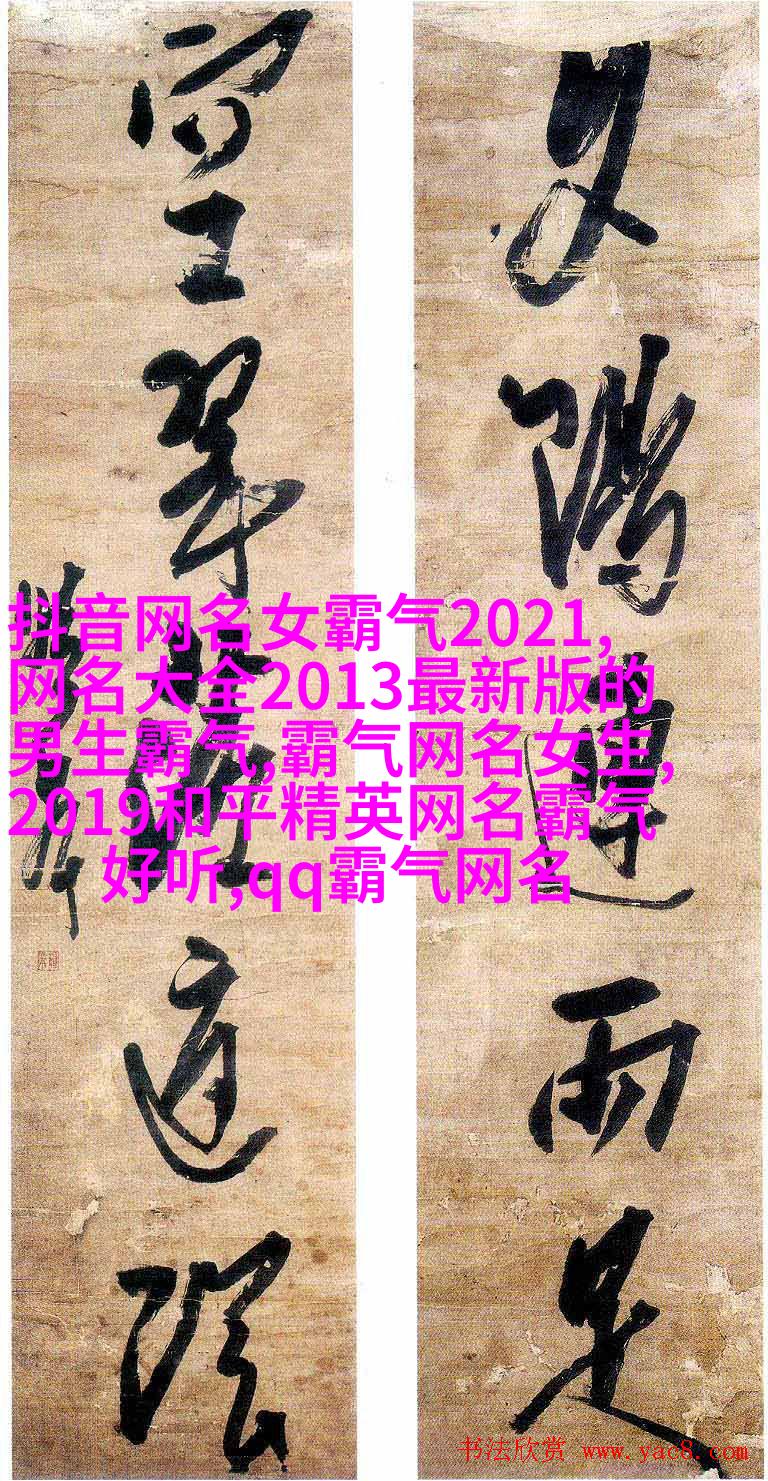 夕陽連雨足
空翠庭陰
抖音网名女霸气2021,
网名大全2013最新版的
男生霸气,霸气网名女生,
2019和平精英网名霸气
好听,qq霸气网名
书法欣赏 www.yac8.com